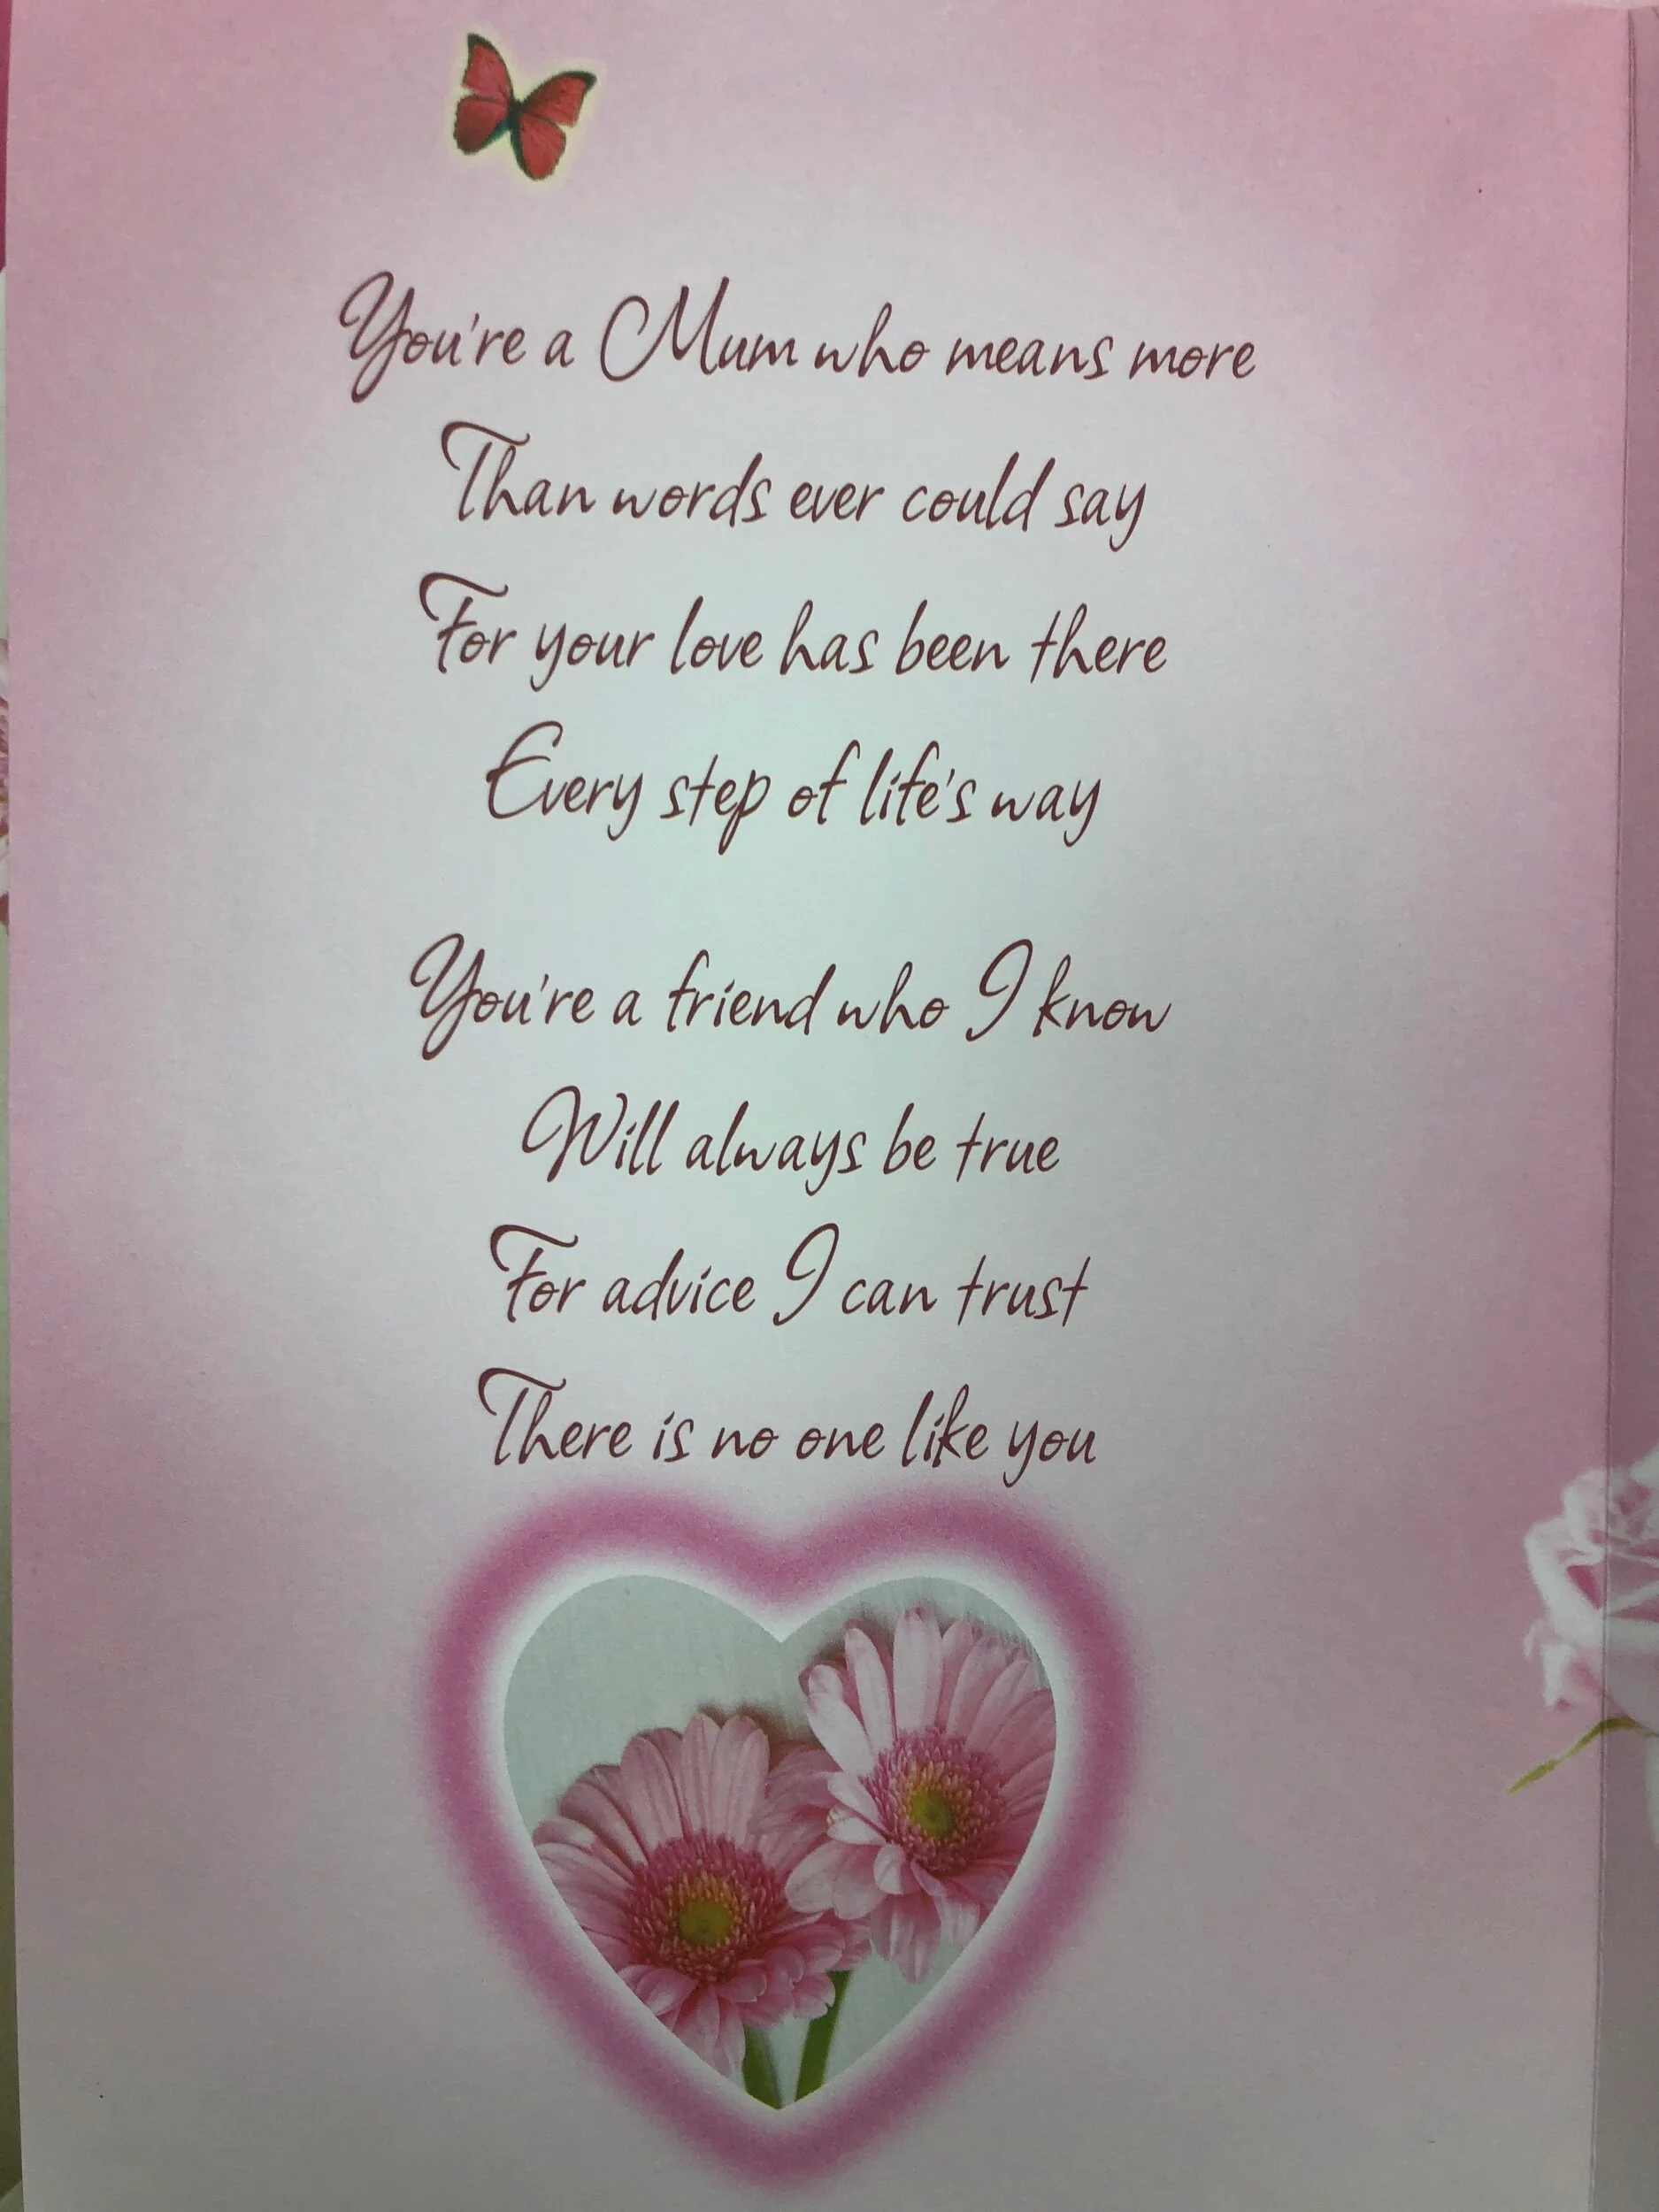 You're a Mum who means more
Than words ever could say
For your love has been there
Every step of life's way
You're a friend who I know
Will always be true
For advice I can trust
There is no one like you